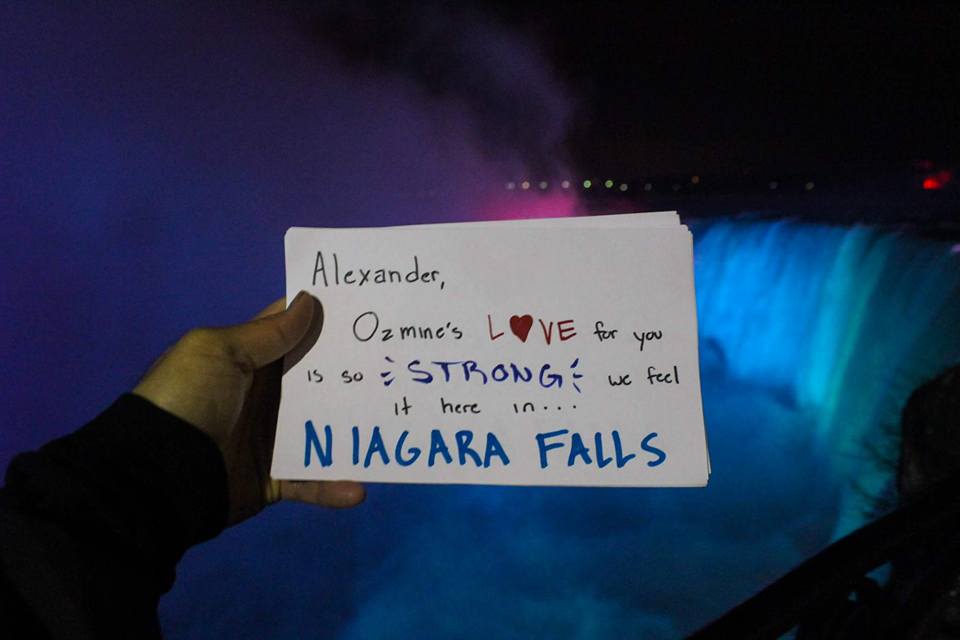 Alexander,
Ozmine's LOVE for you
is so STRONG we feel
it here in...
NIAGARA FALLS